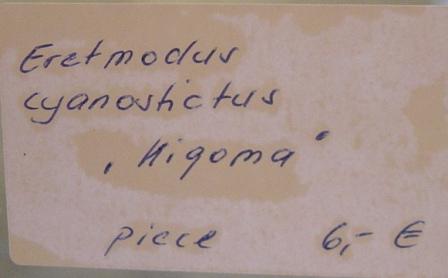 Eretmodus
cyanostictus
, Kigoma '
piece 6,- €